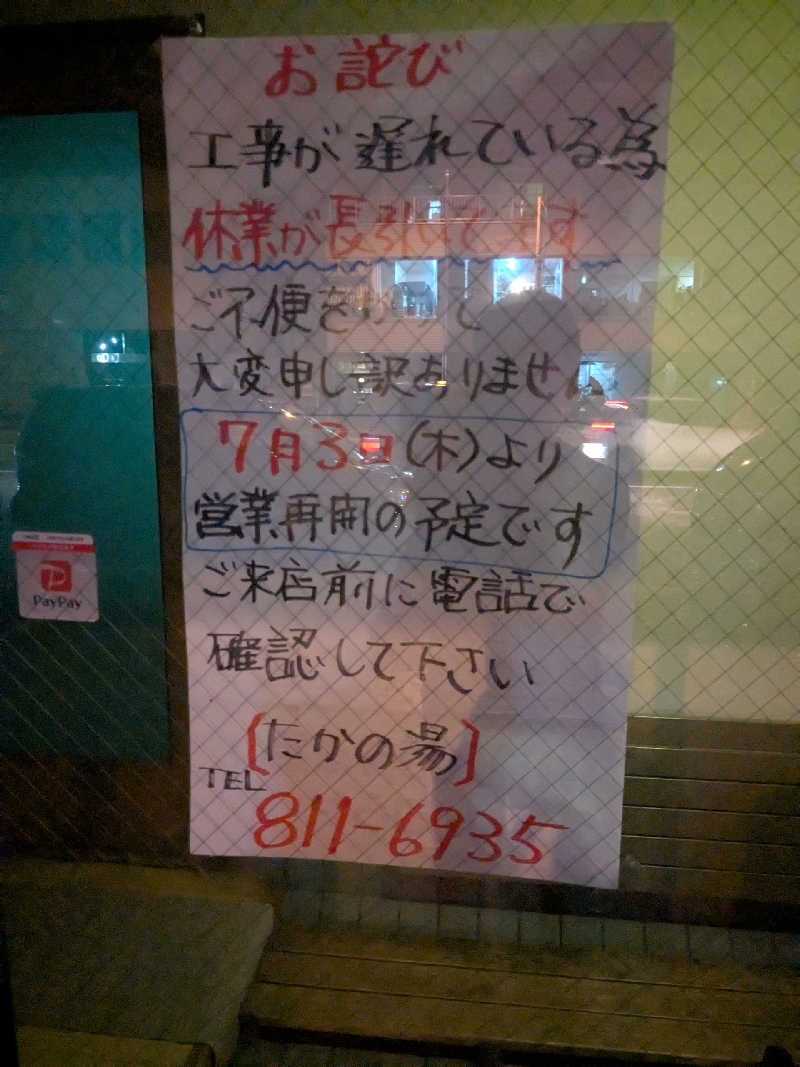 お詫び
工事が遅れている為
休業が長引いてます
ご不便を
大変申し訳ありません
7月3日(木)より
営業再開の予定です
ご来店前に電話で
確認して下さい
[たかの湯]
TEL
811-6935
PayPay